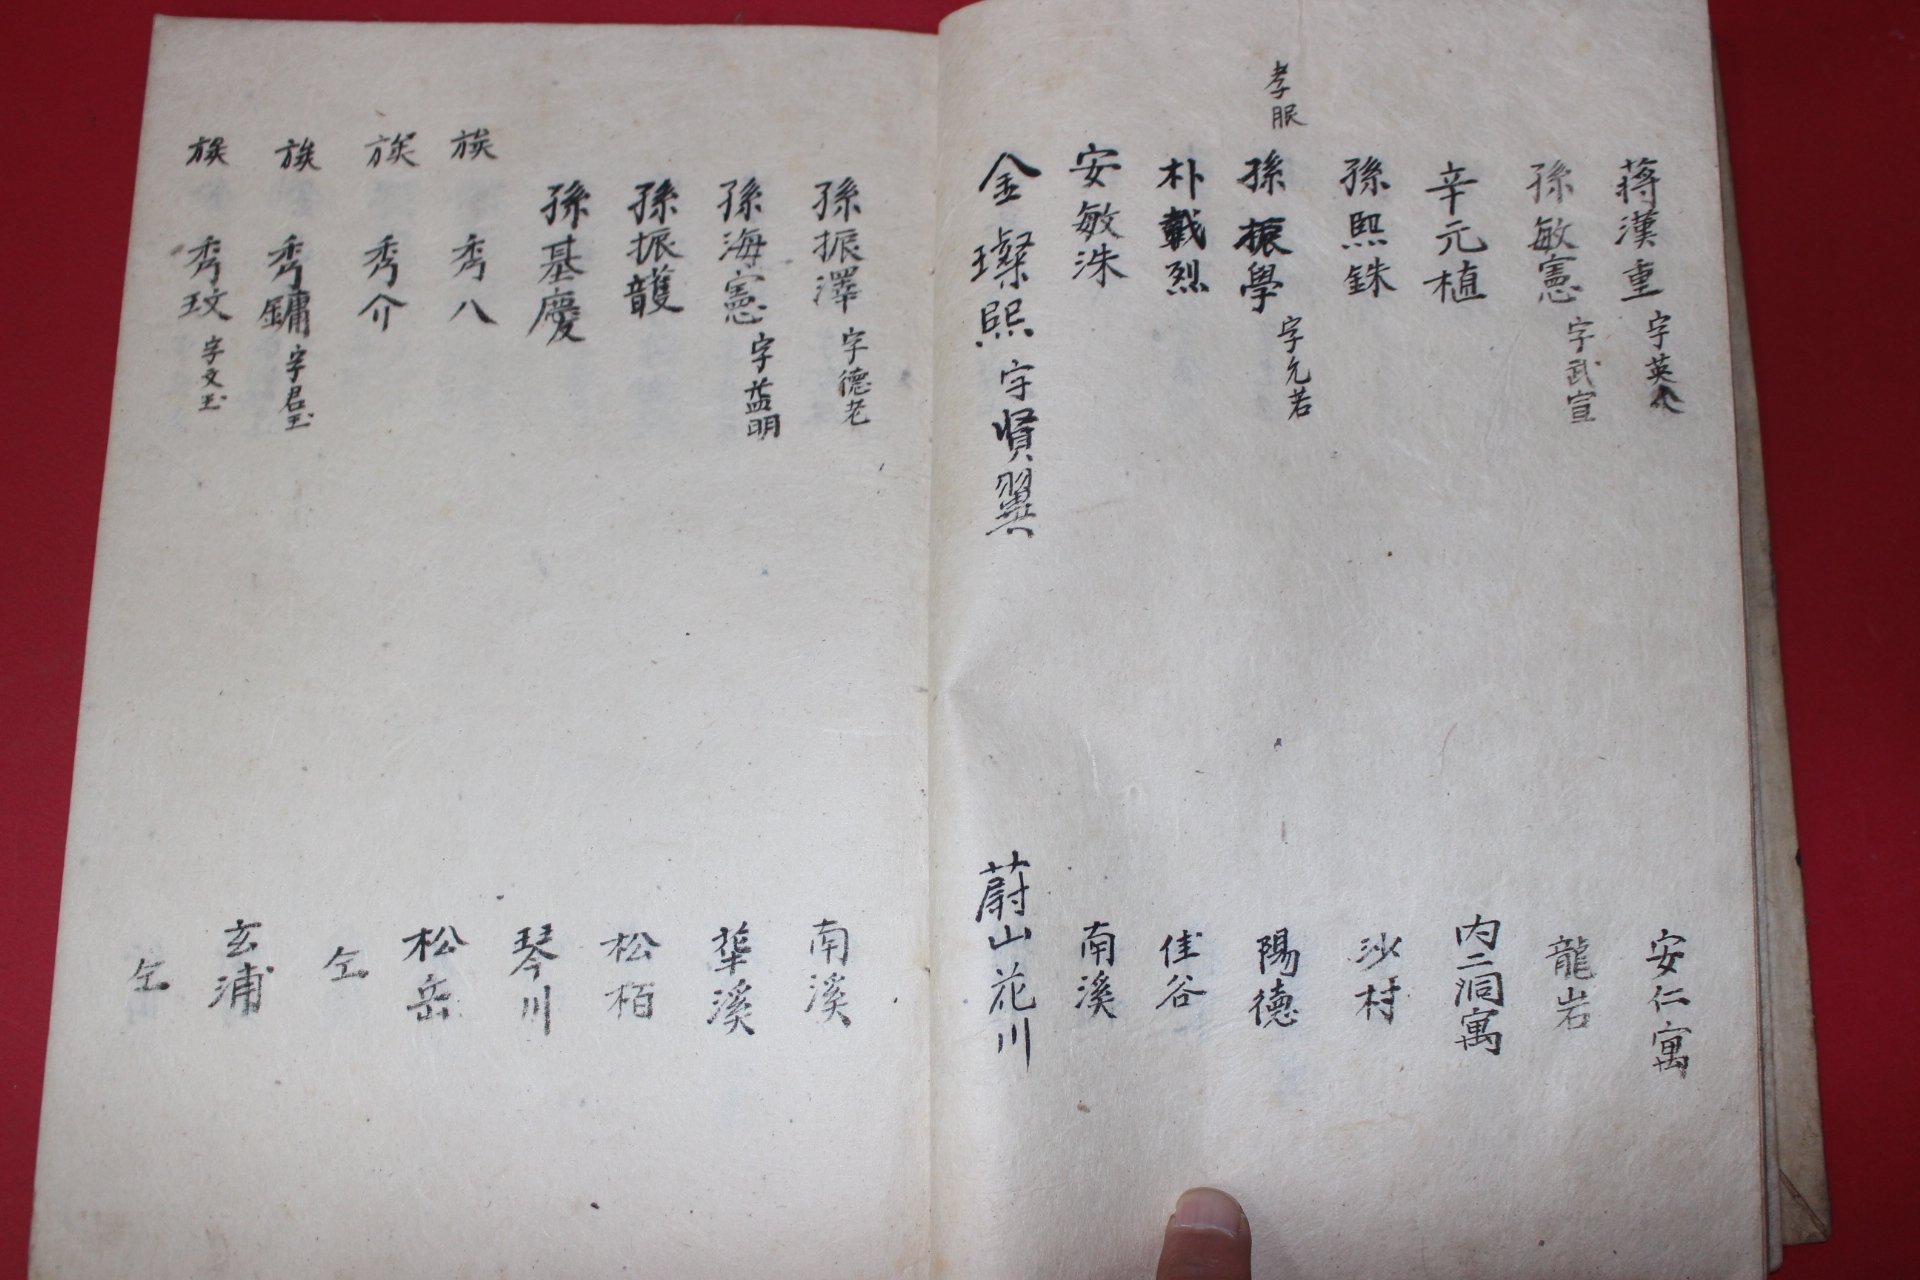 蔣漢重 字英 安仁寓
孫敏憲 字武宣 龍岩
辛元植 內二洞寓
孫熙銖 沙村
孝眠
孫振學 字允若 陽德
朴載烈 佳谷
安敏洙 南溪
金璨熙 字賢翼 蔚山花川
孫振澤 字德老 南溪
孫海憲 字益明 溪
孫振頀 松栢
孫基慶 琴川
族 秀八 松岳
族 秀介 仝
族 秀鏞 字君玉 玄浦
族 秀玟 字文玉 仝